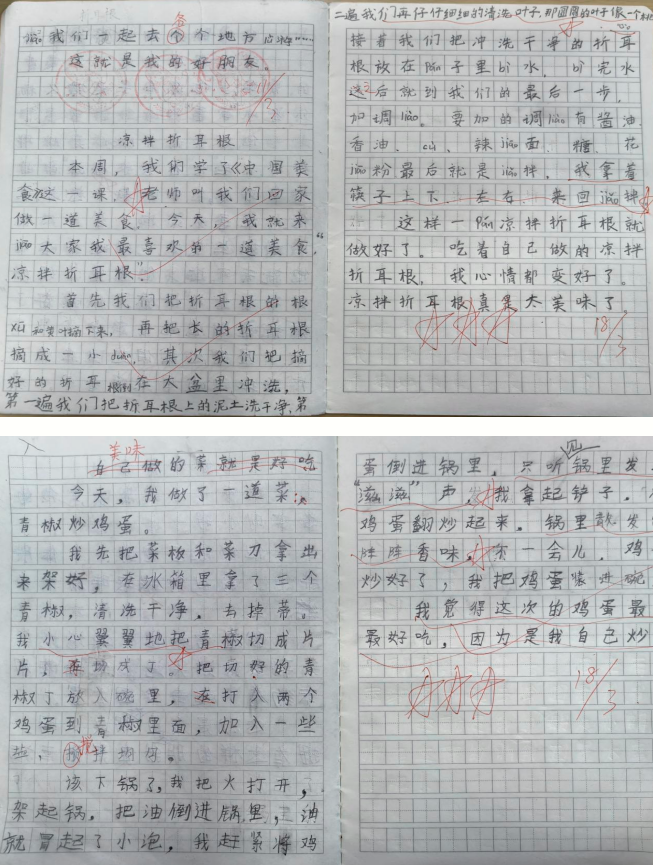 我们一起去个个地方
各
这就是我的好朋友。
11/3
凉拌折耳根
本周，我们学了《中国美
食》这一课，老师叫我们回家
做一道美食。今天，我就来
jiāo大家我最喜欢的一道美食，
凉拌折耳根”。
首先我们把折耳根的根
xū和尖叶摘下来，再把长的折耳根
摘成一小duàn，其次我们把摘
好的折耳根倒在大盆里冲洗，
第一遍我们把折耳根上的泥土洗干净，第
二遍我们再仔仔细细的清洗叶子，那圆圆的叶子像一个
接着我们把冲洗干净的折耳
根放在pén子里bì水，bì完水
这之后就到我们的最后一步，
加调liào。要加的调liào有酱油
香油、cù、辣jiāo面、糖、花
jiāo粉最后就是jiǎo拌，我拿着
筷子上下、左右、来回jiǎo拌
这样一pén凉拌折耳根就
做好了。吃着自己做的凉拌
折耳根，我心情都变好了。
凉拌折耳根真是太美味了。
18/3
美味
自己做的菜就是好吃
今天，我做了一道菜：
青椒炒鸡蛋。
我先把菜板和菜刀拿出
来架好，在冰箱里拿了三个
青椒，清洗干净，去掉蒂。
我小心翼翼地把青椒切成片
片，再切成丁。把切好的青
椒丁放入碗里，在打入两个
鸡蛋到青椒里面，加入一些
盐，搅拌均匀。
该下锅了，我把火打开，
架起锅，把油倒进锅里，油
就冒起了小泡，我赶紧将鸡
蛋倒进锅里，只听锅里发
见
“滋滋”声，我拿起铲子，
鸡蛋翻炒起来。锅里散发
阵阵香味，不一会儿，鸡
炒好了，我把鸡蛋装进碗
我觉得这次的鸡蛋最
最好吃，因为是我自己炒
18/3